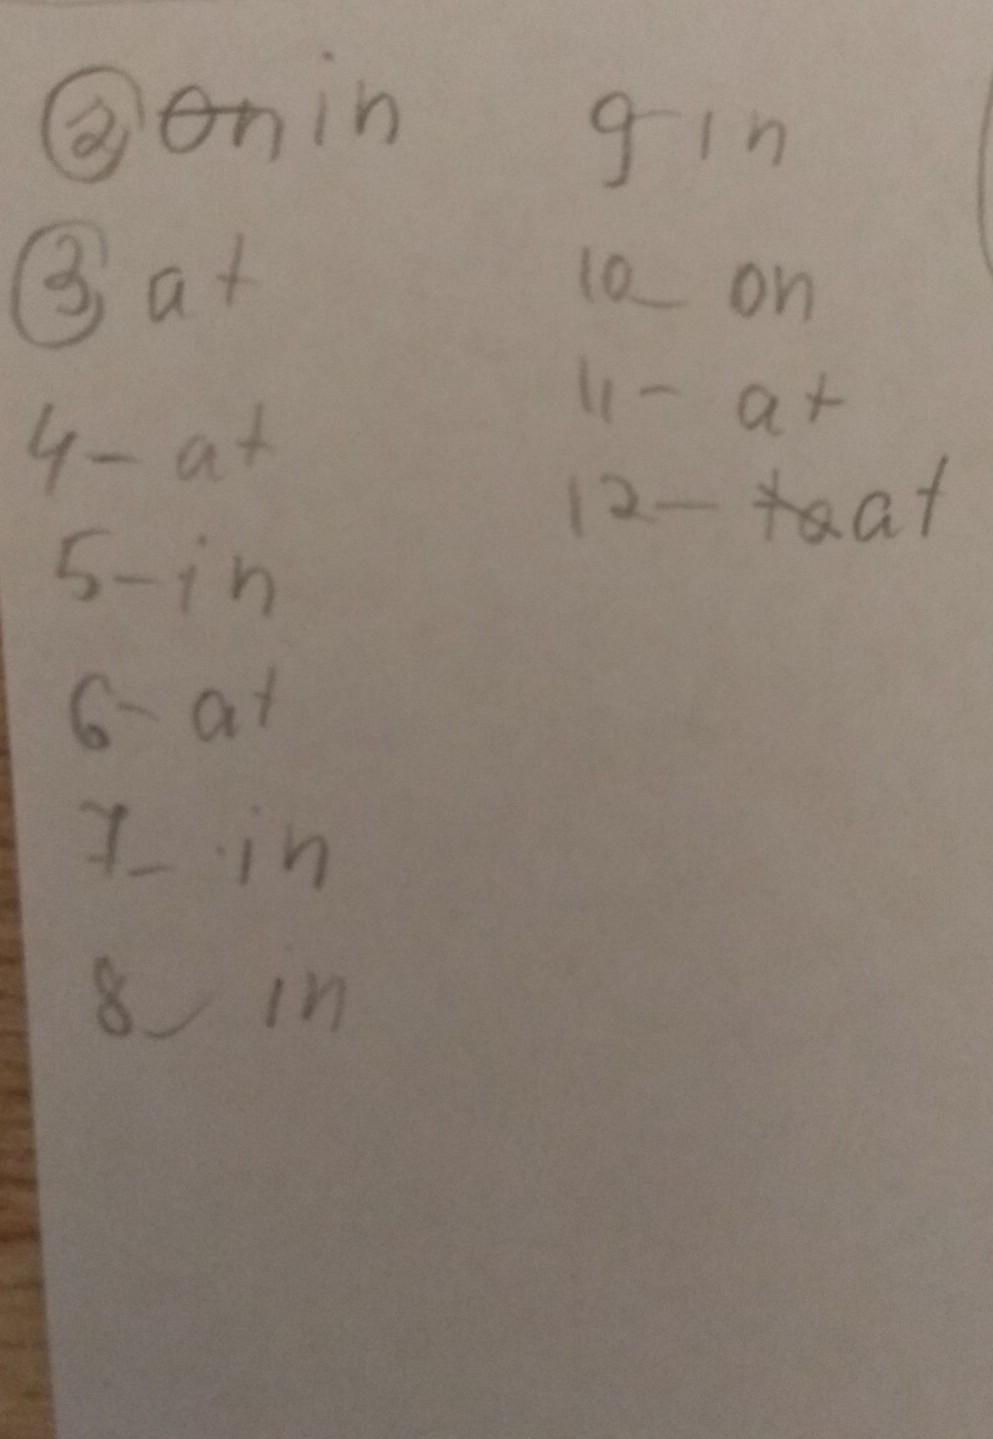 2 on in
3 at
4- at
5- in
6- at
7- in
8- in
9 in
10- on
11- at
12- to at